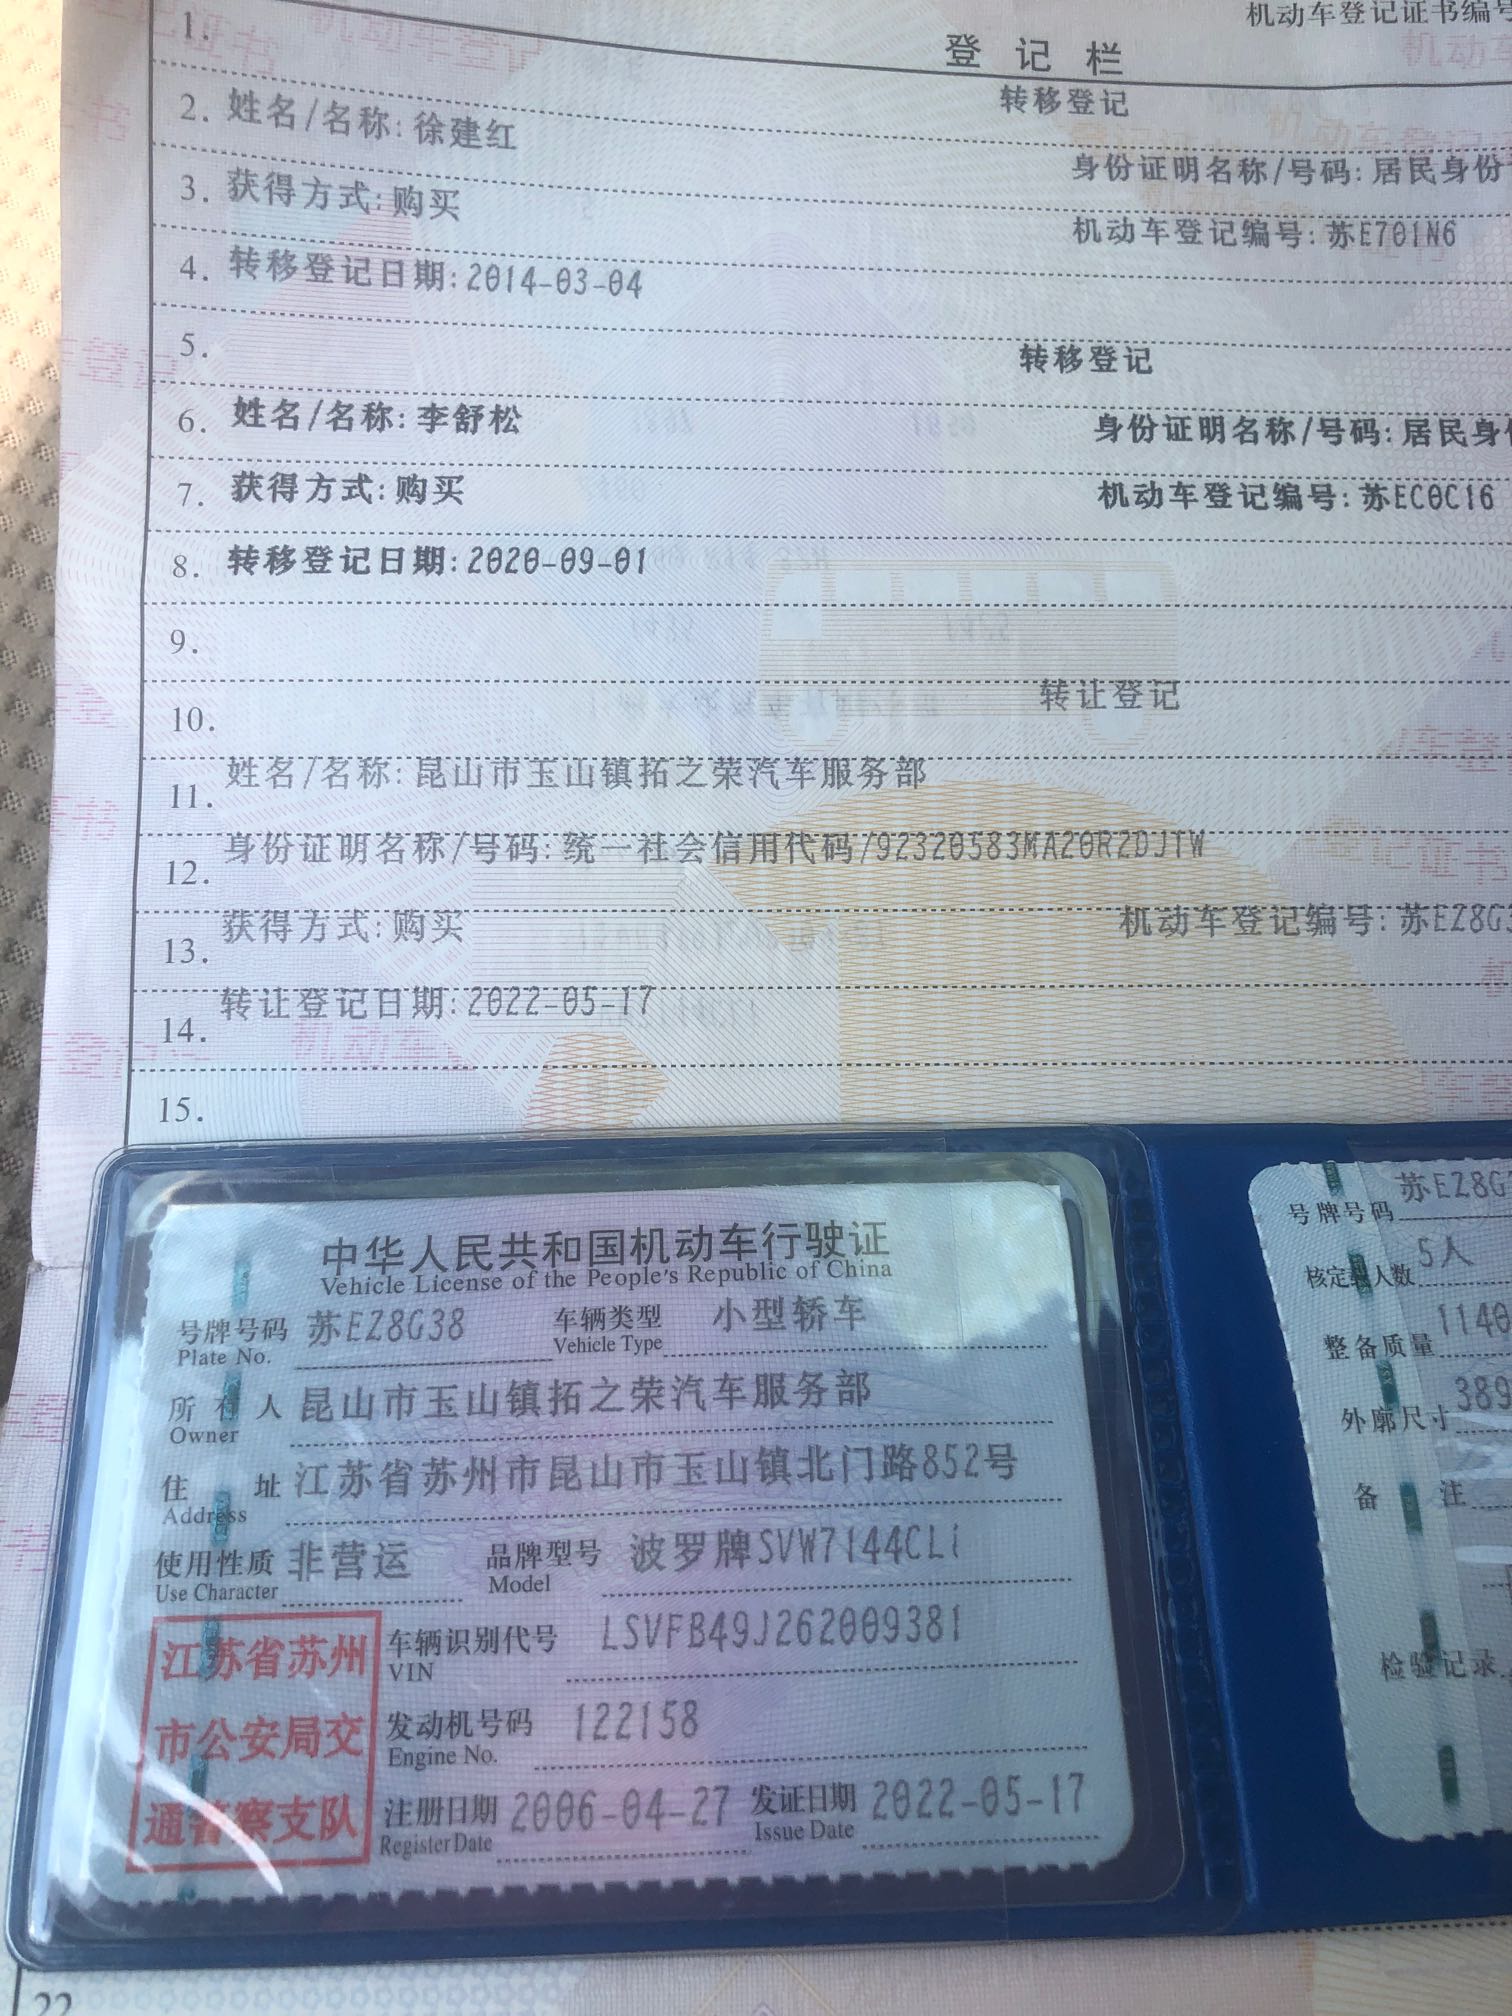 机动车登记证书编号
1.
登记栏
转移登记
2. 姓名/名称: 徐建红
身份证明名称/号码: 居民身份
3. 获得方式: 购买
机动车登记编号: 苏E701N6
4. 转移登记日期: 2014-03-04
5.
转移登记
6. 姓名/名称: 李舒松
身份证明名称/号码: 居民身
7. 获得方式: 购买
机动车登记编号: 苏EC0C16
8. 转移登记日期: 2020-09-01
9.
转让登记
10.
姓名/名称: 昆山市玉山镇拓之荣汽车服务部
11.
身份证明名称/号码: 统一社会信用代码/92320583MA20R2DJTW
12.
获得方式: 购买
机动车登记编号: 苏EZ8G
13.
转让登记日期: 2022-05-17
14.
15.
中华人民共和国机动车行驶证
Vehicle License of the People's Republic of China
号牌号码 苏EZ8G38 车辆类型 小型轿车
Plate No. Vehicle Type
所有人 昆山市玉山镇拓之荣汽车服务部
Owner
住址 江苏省苏州市昆山市玉山镇北门路852号
Address
使用性质 非营运 品牌型号 波罗牌SVW7144CLi
Use Character Model
江苏省苏州
市公安局交
通警察支队
车辆识别代号 LSVFB49J262009381
VIN
发动机号码 122158
Engine No.
注册日期 2006-04-27 发证日期 2022-05-17
Register Date Issue Date
号牌号码 苏EZ8G
核定载人数 5人
整备质量 1140
外廓尺寸 389
备注
检验记录
22